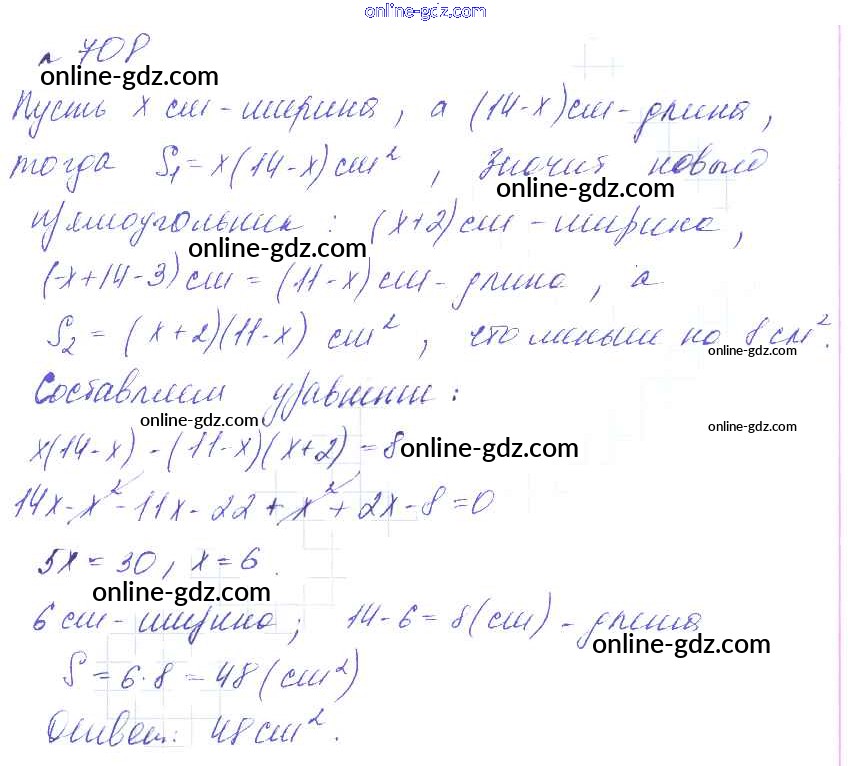 online-gdz.com
№ 708
online-gdz.com
Пусть x см - ширина, а (14-x) см - длина,
тогда S₁ = x(14-x) см², значит новый
online-gdz.com
прямоугольник: (x+2) см - ширина,
online-gdz.com
(-x+14-3) см = (11-x) см - длина, а
S₂ = (x+2)(11-x) см², что меньше на 8 см².
online-gdz.com
Составляем уравнение:
online-gdz.com online-gdz.com
x(14-x) - (11-x)(x+2) = 8 online-gdz.com
14x - x² - 11x - 22 + x² + 2x - 8 = 0
5x = 30, x = 6.
online-gdz.com
6 см - ширина; 14 - 6 = 8 (см) - длина
online-gdz.com
S = 6·8 = 48 (см²)
Ответ: 48 см².